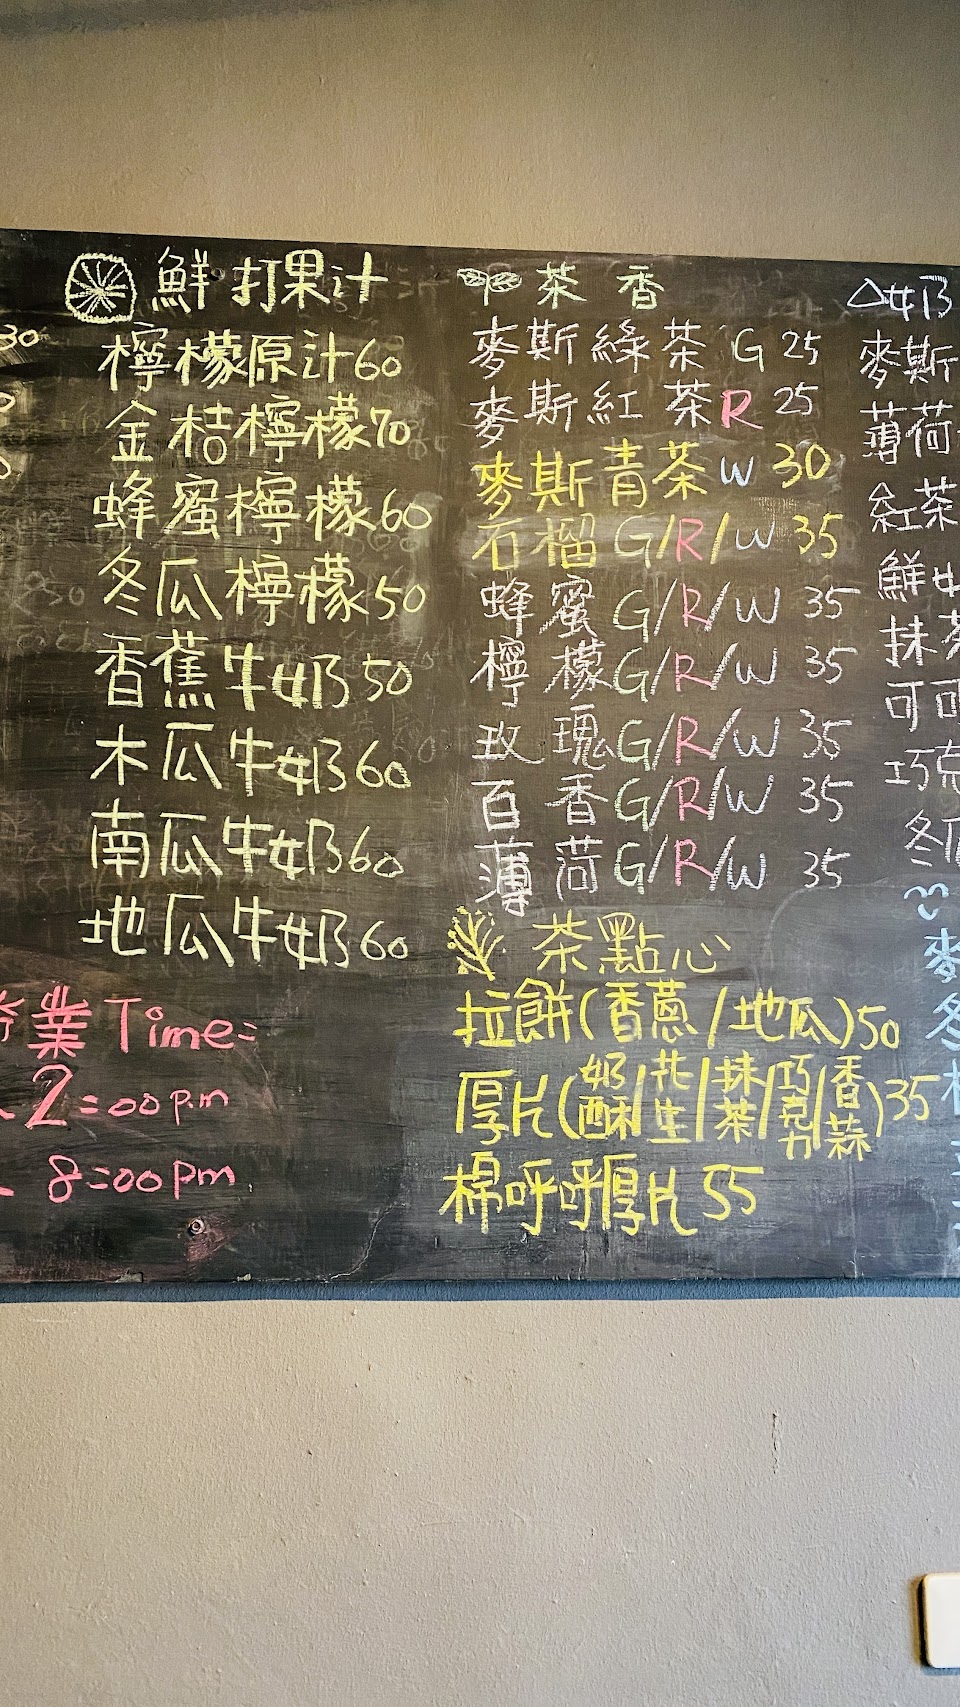 鮮打果汁
檸檬原汁60
金桔檸檬70
蜂蜜檸檬60
冬瓜檸檬50
香蕉牛奶50
木瓜牛奶60
南瓜牛奶60
地瓜牛奶60
業Time:
2:00p.m
8:00pm
茶香
麥斯綠茶 G 25
麥斯紅茶 R 25
麥斯青茶 W 30
石榴 G/R/W 35
蜂蜜 G/R/W 35
檸檬 G/R/W 35
玫瑰 G/R/W 35
百香 G/R/W 35
薄荷 G/R/W 35
茶點心
拉餅(香蔥/地瓜)50
厚片(奶酥/花生/抹茶/巧克力/香蒜)35
棉呼呼厚片55
奶
麥斯
薄荷
紅茶
鮮
抹茶
可可
巧克
冬瓜
麥
冬
30